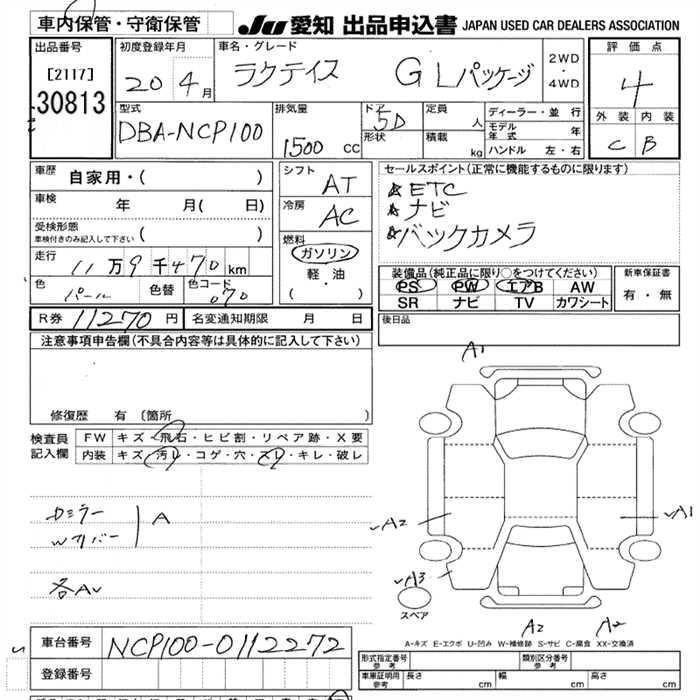 車内保管・守衛保管
JU 愛知 出品申込書 JAPAN USED CAR DEALERS ASSOCIATION
出品番号
[2117]
30813
初度登録年月
20 4月
車名・グレード
ラクティス GLパッケージ
2WD
・
4WD
評価点
4
外装 内装
C B
型式
DBA-NCP100
排気量
1500 cc
ドア
5D
形状
定員
人
積載
kg
ディーラー・並行
モデル年式 年
ハンドル 左・右
車歴
自家用・( )
車検
年 月( 日)
受検形態
車検付きのみ記入して下さい ( )
走行
11万9千470km
色
パール
色替
色コード
070
シフト
AT
冷房
AC
燃料
ガソリン
軽・油
( ・ )
セールスポイント(正常に機能するものに限ります)
☆ETC
☆ナビ
☆バックカメラ
装備品(純正品に限り○をつけてください)
PS PW エアB AW
SR ナビ TV カワシート
新車保証書
有・無
R券 11270円 名変通知期限 月 日
後日品
注意事項申告欄(不具合内容等は具体的に記入して下さい)
修復歴 有(箇所 )
検査員記入欄
FW キズ・飛石・ヒビ割・リペア跡・X要
内装 キズ・汚レ・コゲ・穴・スレ・キレ・破レ
Dミラー
Wワイパー
A
各A
A1
A2
A1
A3
スペア
A2
A2
A-キズ E-エクボ U-凹み W-補修跡 S-サビ C-腐食 XX-交換済
車台番号
NCP100-0112272
登録番号
形式指定番号
参考
類別区分番号
参考
車庫証明用
参考
長さ cm 幅 cm 高さ cm